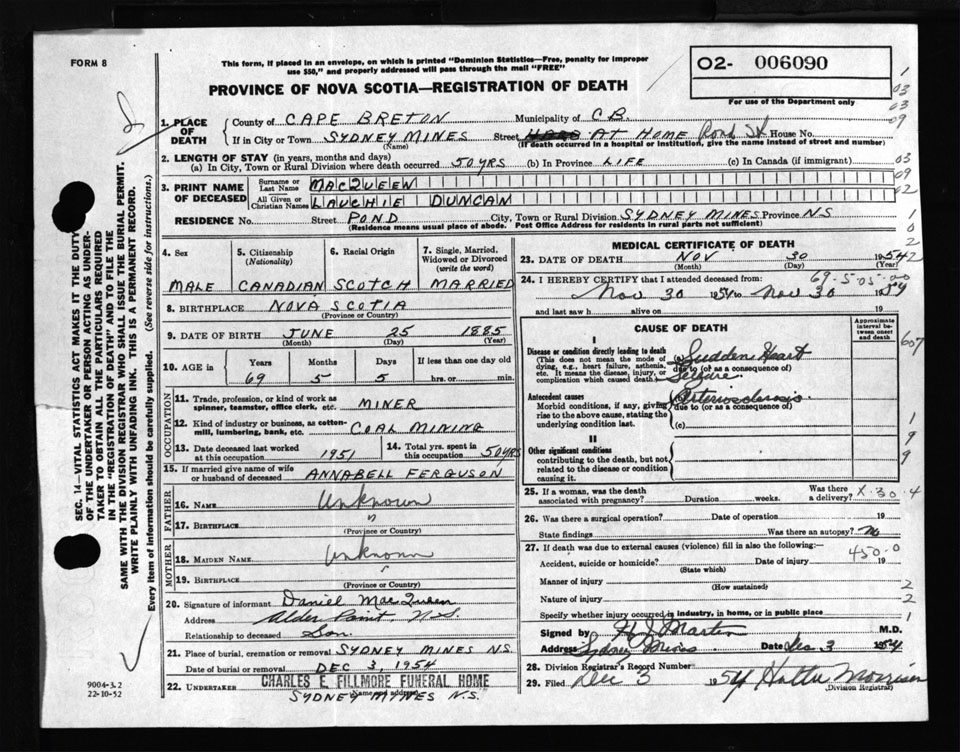 FORM 8
This form, if placed in an envelope, on which is printed "Dominion Statistics—Free, penalty for improper
use $50," and properly addressed will pass through the mail "FREE"
PROVINCE OF NOVA SCOTIA—REGISTRATION OF DEATH
02- 006090
For use of the Department only
1. PLACE OF DEATH
County of CAPE BRETON Municipality of C.B.
If in City or Town SYDNEY MINES Street AT HOME Pond St House No.
(Name) (If death occurred in a hospital or institution, give the name instead of street and number)
2. LENGTH OF STAY (in years, months and days)
(a) In City, Town or Rural Division where death occurred 50 YRS (b) In Province LIFE (c) In Canada (if immigrant)
3. PRINT NAME OF DECEASED
Surname or Last Name MACQUEEN
All Given or Christian Names LAUCHIE DUNCAN
RESIDENCE No. Street POND City, Town or Rural Division SYDNEY MINES Province N.S
(Residence means usual place of abode. Post Office Address for residents in rural parts not sufficient)
4. Sex MALE
5. Citizenship (Nationality) CANADIAN
6. Racial Origin SCOTCH
7. Single, Married, Widowed or Divorced (write the word) MARRIED
8. BIRTHPLACE NOVA SCOTIA
(Province or Country)
9. DATE OF BIRTH JUNE 25 1885
(Month) (Day) (Year)
10. AGE in Years Months Days If less than one day old
69 5 5 hrs. or min.
OCCUPATION
11. Trade, profession, or kind of work as
spinner, teamster, office clerk, etc. MINER
12. Kind of industry or business, as cotton-
mill, lumbering, bank, etc. COAL MINING
13. Date deceased last worked at this occupation 1951
14. Total yrs. spent in this occupation 50 YRS
15. If married give name of wife
or husband of deceased ANNABELL FERGUSON
FATHER
16. NAME Unknown
17. BIRTHPLACE "
(Province or Country)
MOTHER
18. MAIDEN NAME Unknown
19. BIRTHPLACE
(Province or Country)
20. Signature of informant Daniel MacQueen
Address Alder Point, N.S.
Relationship to deceased Son.
21. Place of burial, cremation or removal SYDNEY MINES N.S.
Date of burial or removal DEC 3, 1954
22. UNDERTAKER CHARLES E. FILLMORE FUNERAL HOME
(Name and address)
SYDNEY MINES N.S.
MEDICAL CERTIFICATE OF DEATH
23. DATE OF DEATH NOV 30 1954
(Month) (Day) (Year)
69-5-05-00
24. I HEREBY CERTIFY that I attended deceased from:
Nov 30 1954 to Nov 30 1954
and last saw h alive on 19
CAUSE OF DEATH
Approximate interval between onset and death
I
Disease or condition directly leading to death (a) Sudden Heart
(This does not mean the mode of
dying, e.g., heart failure, asthenia, due to (or as a consequence of)
etc. It means the disease, injury, or
complication which caused death.)
Antecedent causes (b) Arteriosclerosis
Morbid conditions, if any, giving due to (or as a consequence of)
rise to the above cause, stating the
underlying condition last. (c)
II
Other significant conditions
contributing to the death, but not
related to the disease or condition
causing it.
25. If a woman, was the death associated with pregnancy? Duration weeks. Was there a delivery? X-30-4
26. Was there a surgical operation? Date of operation 19
State findings Was there an autopsy? No
27. If death was due to external causes (violence) fill in also the following:— 450-0
Accident, suicide or homicide? Date of injury 19
(State which)
Manner of injury
(How sustained)
Nature of injury
Specify whether injury occurred in industry, in home, or in public place
Signed by H J Martin M.D.
Address Sydney Mines Date Dec 3 1954
28. Division Registrar's Record Number
29. Filed Dec 3 1954 Hattie Morrison
(Division Registrar)
SEC. 14—VITAL STATISTICS ACT MAKES IT THE DUTY
OF THE UNDERTAKER OR PERSON ACTING AS UNDER-
TAKER TO OBTAIN ALL THE PARTICULARS REQUIRED
IN THE "REGISTRATION OF DEATH" AND TO FILE THE
SAME WITH THE DIVISION REGISTRAR WHO SHALL ISSUE THE BURIAL PERMIT.
WRITE PLAINLY WITH UNFADING INK. THIS IS A PERMANENT RECORD.
Every item of information should be carefully supplied. (See reverse side for instructions.)
9004-3.2
22-10-52